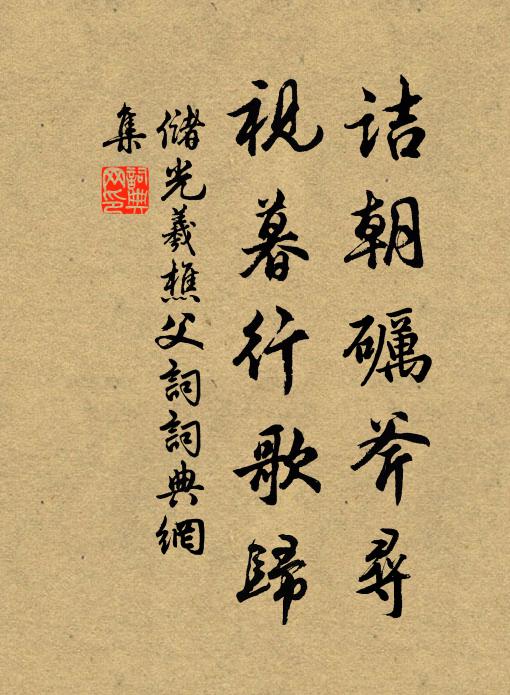 詰朝礪斧尋
視暮行歌歸
儲光羲樵父詞詞典網
集
詞典網印